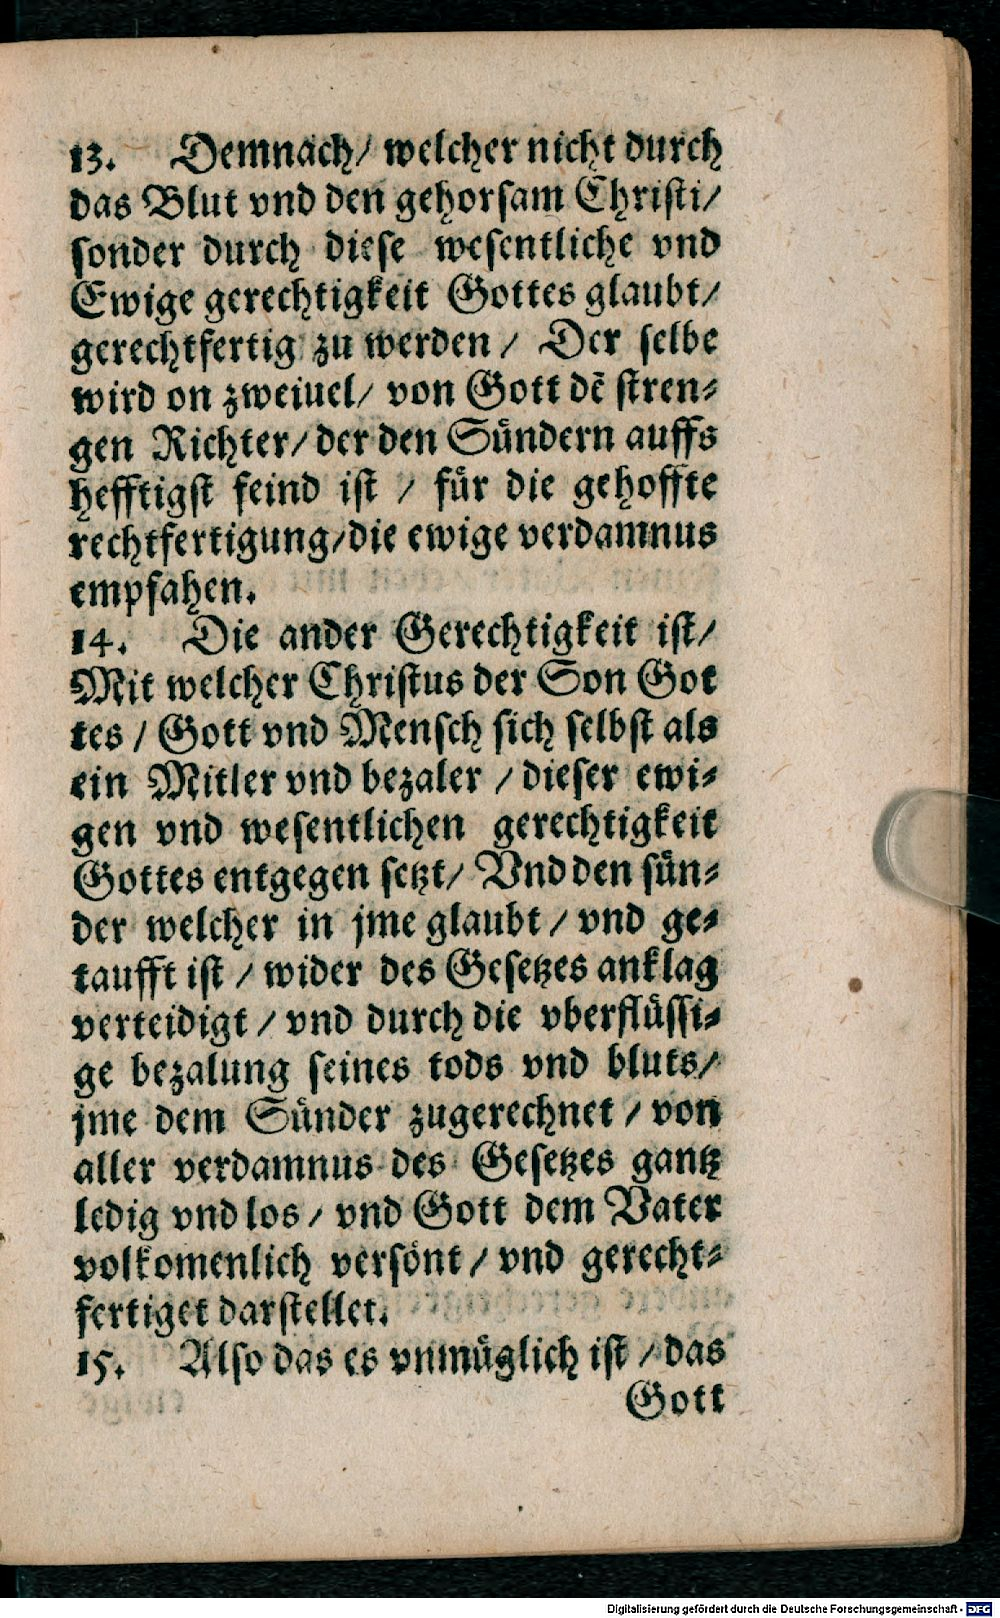 13. Demnach/ welcher nicht durch
das Blut vnd den gehorsam Christi/
sonder durch diese wesentliche vnd
Ewige gerechtigkeit Gottes glaubt/
gerechtfertig zu werden / Der selbe
wird on zweiuel/ von Gott dē stren⸗
gen Richter/ der den Sündern auffs
hefftigst feind ist / für die gehoffte
rechtfertigung/die ewige verdamnus
empfahen.
14. Die ander Gerechtigkeit ist/
Mit welcher Christus der Son Got
tes / Gott vnd Mensch sich selbst als
ein Mitler vnd bezaler / dieser ewi⸗
gen vnd wesentlichen gerechtigkeit
Gottes entgegen setzt/ Vnd den sün⸗
der welcher in jme glaubt / vnd ge⸗
taufft ist / wider des Gesetzes anklag
verteidigt / vnd durch die vberflüssi⸗
ge bezalung seines tods vnd bluts/
jme dem Sünder zugerechnet / von
aller verdamnus des Gesetzes gantz
ledig vnd los / vnd Gott dem Vater
volkomenlich versönt / vnd gerecht⸗
fertiget darstellet.
15. Also das es vnmüglich ist / das
Gott
Digitalisierung gefördert durch die Deutsche Forschungsgemeinschaft - DFG